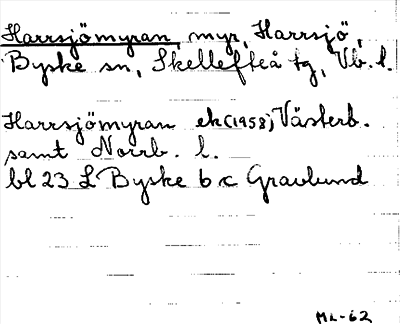 Harrsjömyran, myr, Harrsjö,
Byske sn, Skellefteå tg, Vb. l.
Harrsjömyran ek(1958), Västerb.
samt Norrb. l.
bl 23 L Byske b c Gravlund
ML-62